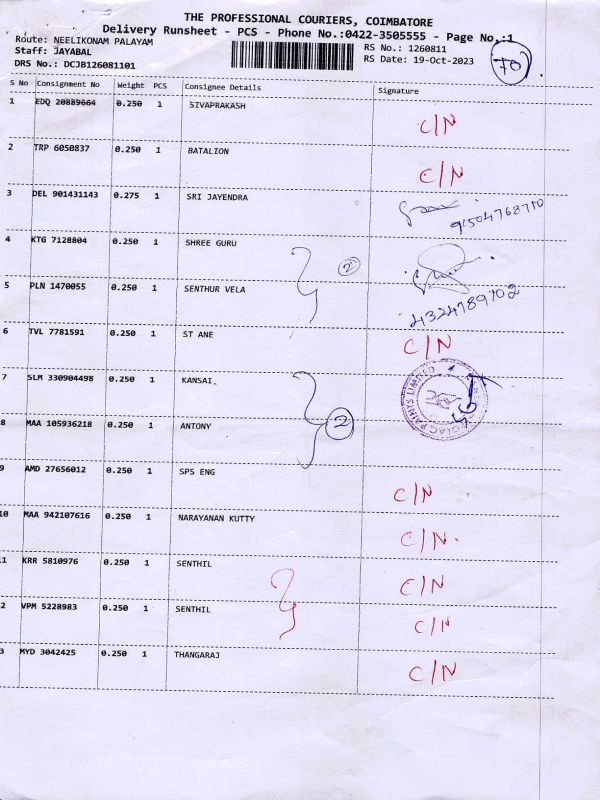 THE PROFESSIONAL COURIERS, COIMBATORE
Delivery Runsheet - PCS - Phone No.:0422-3505555 - Page No.:1
Route: NEELIKONAM PALAYAM RS No.: 1260811
Staff: JAYABAL RS Date: 19-Oct-2023 70
DRS No.: DCJB126081101
S No Consignment No Weight PCS Consignee Details Signature
1 EDQ 20889664 0.250 1 SIVAPRAKASH C/N
2 TRP 6050837 0.250 1 BATALION C/N
3 DEL 901431143 0.275 1 SRI JAYENDRA
4 KTG 7128804 0.250 1 SHREE GURU 2
5 PLN 1470055 0.250 1 SENTHUR VELA
6 TVL 7781591 0.250 1 ST ANE C/N
7 SLM 330904498 0.250 1 KANSAI
8 MAA 105936218 0.250 1 ANTONY 2
9 AMD 27656012 0.250 1 SPS ENG C/N
10 MAA 942107616 0.250 1 NARAYANAN KUTTY C/N
1 KRR 5810976 0.250 1 SENTHIL C/N
2 VPM 5228983 0.250 1 SENTHIL C/N
3 MYD 3042425 0.250 1 THANGARAJ C/N